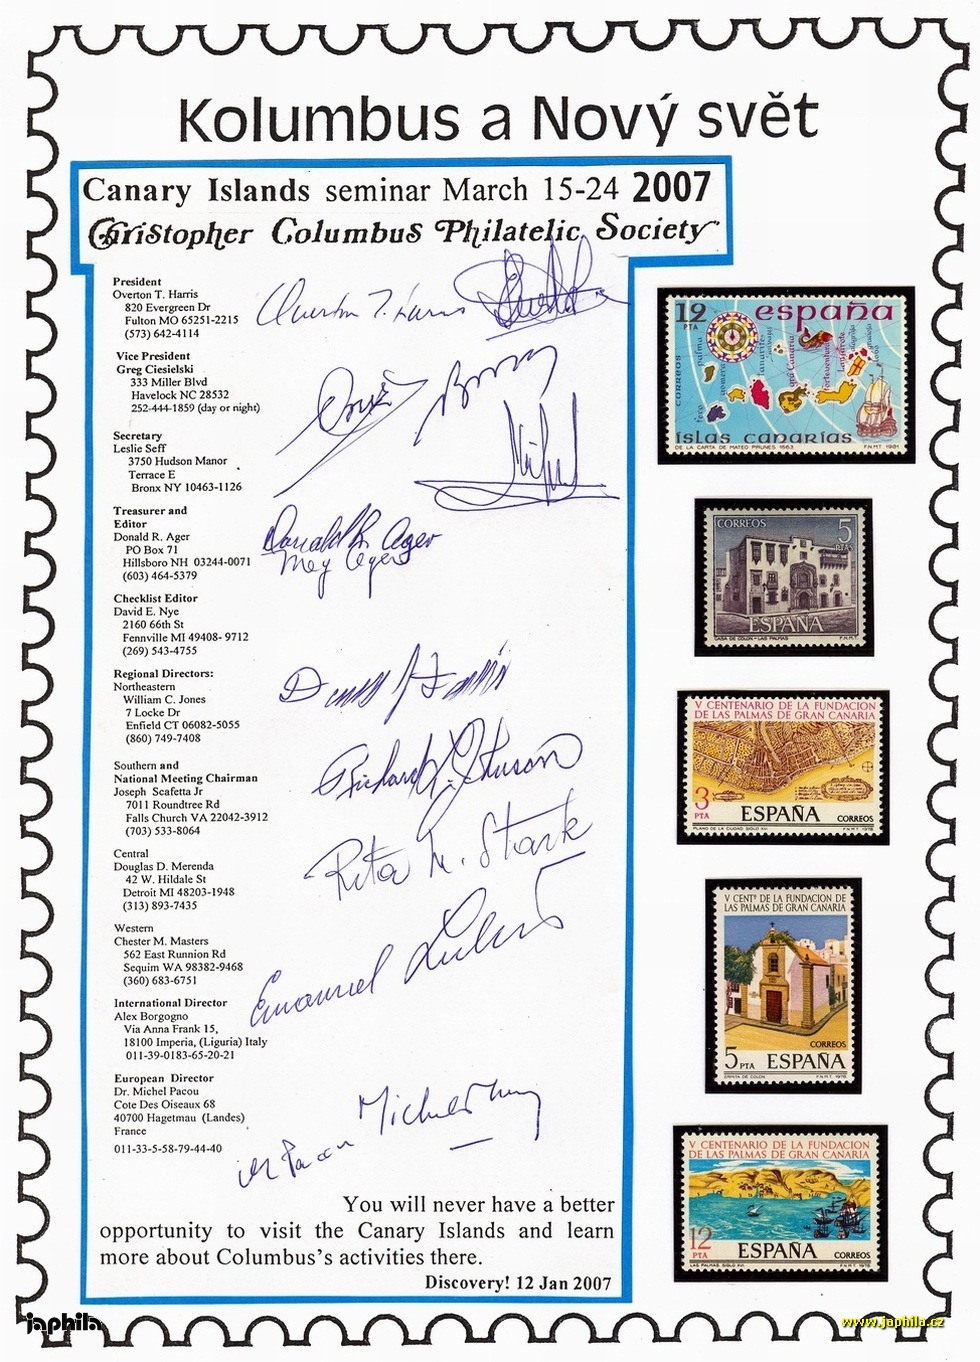 Kolumbus a Nový svět
Canary Islands seminar March 15-24 2007
Christopher Columbus Philatelic Society
President
Overton T. Harris
820 Evergreen Dr
Fulton MO 65251-2215
(573) 642-4114
Vice President
Greg Ciesielski
333 Miller Blvd
Havelock NC 28532
252-444-1859 (day or night)
Secretary
Leslie Seff
3750 Hudson Manor
Terrace E
Bronx NY 10463-1126
Treasurer and
Editor
Donald R. Ager
PO Box 71
Hillsboro NH 03244-0071
(603) 464-5379
Checklist Editor
David E. Nye
2160 66th St
Fennville MI 49408- 9712
(269) 543-4755
Regional Directors:
Northeastern
William C. Jones
7 Locke Dr
Enfield CT 06082-5055
(860) 749-7408
Southern and
National Meeting Chairman
Joseph Scafetta Jr
7011 Roundtree Rd
Falls Church VA 22042-3912
(703) 533-8064
Central
Douglas D. Merenda
42 W. Hildale St
Detroit MI 48203-1948
(313) 893-7435
Western
Chester M. Masters
562 East Runnion Rd
Sequim WA 98382-9468
(360) 683-6751
International Director
Alex Borgogno
Via Anna Frank 15,
18100 Imperia, (Liguria) Italy
011-39-0183-65-20-21
European Director
Dr. Michel Pacou
Cote Des Oiseaux 68
40700 Hagetmau (Landes)
France
011-33-5-58-79-44-40
Overton T. Harris
Donald R. Ager
Meg Ager
Richard Johnson
Rita M. Stark
Emanuel
You will never have a better
opportunity to visit the Canary Islands and learn
more about Columbus's activities there.
Discovery! 12 Jan 2007
12 PTA españa
CORREOS
islas canarias
DE LA CARTA DE MATEO PRUNES 1563 F.N.M.T. 1981
CORREOS 5 PTAS
ESPAÑA
CASA DE COLON - LAS PALMAS F.N.M.T.
V CENTENARIO DE LA FUNDACION
DE LAS PALMAS DE GRAN CANARIA
3 PTA ESPAÑA CORREOS
PLANO DE LA CIUDAD. SIGLO XVI F.N.M.T. 1978
V CENTº DE LA FUNDACION DE
LAS PALMAS DE GRAN CANARIA
CORREOS
5 PTA ESPAÑA
ERMITA DE COLON F.N.M.T. 1978
V CENTENARIO DE LA FUNDACION
DE LAS PALMAS DE GRAN CANARIA
12 PTA ESPAÑA CORREOS
LAS PALMAS. SIGLO XVI F.N.M.T. 1978
japhila
www.japhila.cz